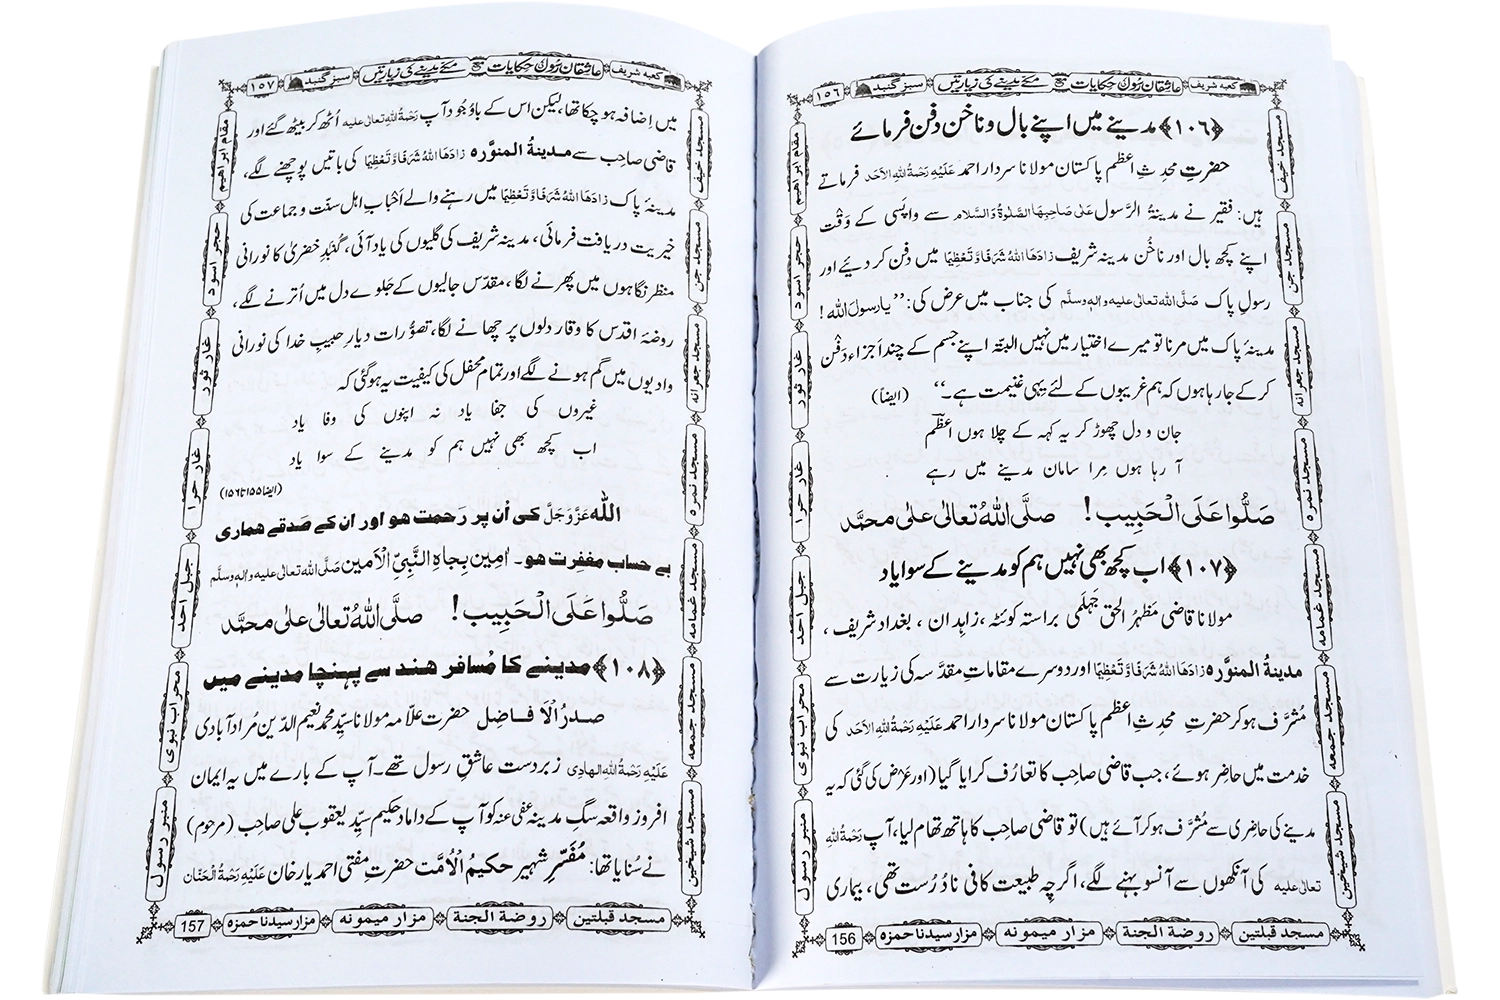 کعبہ شریف عاشقانِ رسول کی حکایات مع مکے مدینے کی زیارتیں سبز گنبد ١٥٦
﴿١٠٦﴾ مدینے میں اپنے بال و ناخن دفن فرمائے
حضرتِ محدثِ اعظم پاکستان مولانا سردار احمد عَلَیْہِ رَحْمَۃُ اللہِ الْاَحَد فرماتے
ہیں: فقیر نے مدینۃُ الرَّسول عَلٰی صَاحِبِہَا الصَّلٰوۃُ وَالسَّلَام سے واپَسی کے وَقْت
اپنے کچھ بال اور ناخُن مدینہ شریف زَادَہَا اللہُ شَرَفًا وَّ تَعْظِیْمًا میں دفْن کر دیئے اور
رسولِ پاک صَلَّی اللہ تعالٰی علیہ واٰلہٖ وسلَّم کی جناب میں عرض کی: ’’یارسولَ اللہ !
مدینۂ پاک میں مرنا تو میرے اختیار میں نہیں البتّہ اپنے جسم کے چند اَجزاء دَفْن
کرکے جارہا ہوں کہ ہم غریبوں کے لئے یہی غنیمت ہے۔‘‘ (ایضاً)
جان و دل چھوڑ کر یہ کہہ کے چلا ہوں اعظؔم
آ رہا ہوں مِرا سامان مدینے میں رہے
صَلُّوا عَلَی الْحَبِیب ! صلَّی اللہُ تعالٰی علٰی محمَّد
﴿١٠٧﴾ اب کچھ بھی نہیں ہم کو مدینے کے سوا یاد
مولانا قاضی مَظہَرُ الحق جَہلَمی براستہ کوئٹہ ، زاہِدان ، بغداد شریف ،
مدینۃُ المنوَّرہ زَادَہَا اللہُ شَرَفًا وَّ تَعْظِیْمًا اور دوسرے مقاماتِ مقدَّسہ کی زیارت سے
مُشرَّف ہوکر حضرتِ محدثِ اعظم پاکستان مولانا سردار احمد عَلَیْہِ رَحْمَۃُ اللہِ الْاَحَد کی
خدمت میں حاضِر ہوئے، جب قاضی صاحب کا تعارُف کرایا گیا (اور عَرْض کی گئی کہ یہ
مدینے کی حاضِری سے مُشرَّف ہوکر آئے ہیں) تو قاضی صاحب کا ہاتھ تھام لیا، آپ رَحْمَۃُ اللہِ
تعالٰی علیہ کی آنکھوں سے آنسو بہنے لگے، اگرچِہ طبیعت کافی نادُرُست تھی، بیماری
156 مزارِ سیدنا حمزہ مزارِ میمونہ روضۃ الجنۃ مسجد قبلتین
مسجد خیف مسجد جن مسجد جعرانہ مسجد نمرہ مسجد غمامہ مسجد جمعہ مسجد شیخین
مقام ابراھیم حجرِ اسود غارِ ثور غارِ حرا جبلِ احد محرابِ نبوی منبرِ رسول
کعبہ شریف عاشقانِ رسول کی حکایات مع مکے مدینے کی زیارتیں سبز گنبد ١٥٧
میں اِضافہ ہو چکا تھا، لیکن اس کے باوُجُود آپ رَحْمَۃُ اللہِ تعالٰی علیہ اُٹھ کر بیٹھ گئے اور
قاضی صاحِب سے مدینۃُ المنوَّرہ زَادَہَا اللہُ شَرَفًا وَّ تَعْظِیْمًا کی باتیں پوچھنے لگے،
مدینۂ پاک زَادَہَا اللہُ شَرَفًا وَّ تَعْظِیْمًا میں رہنے والے اَحْبابِ اہلِ سنّت و جماعت کی
خیریت دریافت فرمائی، مدینہ شریف کی گلیوں کی یاد آئی، گُنبَدِ خضریٰ کا نورانی
منظر نگاہوں میں پھرنے لگا، مقدّس جالیوں کے جَلوے دل میں اُترنے لگے،
روضۂ اقدس کا وقار دلوں پر چھانے لگا، تصوُّرات دیارِ حبیبِ خدا کی نورانی
وادیوں میں گم ہونے لگے اور تمام محفل کی کیفیت یہ ہوگئی کہ
غیروں کی جفا یاد نہ اپنوں کی وفا یاد
اب کچھ بھی نہیں ہم کو مدینے کے سوا یاد
(ایضاً ١٥٥ تا ١٥٦)
اللہ عَزَّوَجَلَّ کی اُن پر رَحمت ہو اور ان کے صَدقے ہماری
بے حساب مغفِرت ہو۔ اٰمِین بِجاہِ النَّبِیِّ الْاَمین صَلَّی اللہ تعالٰی علیہ واٰلہٖ وسلَّم
صَلُّوا عَلَی الْحَبِیب ! صلَّی اللہُ تعالٰی علٰی محمَّد
﴿١٠٨﴾ مدینے کا مُسافر ہند سے پہنچا مدینے میں
صدرُ الْاَفاضِل حضرتِ علّامہ مولانا سیِّد محمد نعیم الدّین مُراد آبادی
عَلَیْہِ رَحْمَۃُ اللہِ الْہَادِی زبردست عاشقِ رسول تھے۔ آپ کے بارے میں یہ ایمان
افروز واقعہ سگِ مدینہ عفی عنہ کو آپ کے داماد حکیم سیِّد یعقوب علی صاحِب (مرحوم)
نے سُنایا تھا: مُفَسِّرِ شہیر حکیمُ الْاُمَّت حضرتِ مفتی احمد یار خان عَلَیْہِ رَحْمَۃُ الْحَنَّان
157 مزارِ سیدنا حمزہ مزارِ میمونہ روضۃ الجنۃ مسجد قبلتین
مسجد خیف مسجد جن مسجد جعرانہ مسجد نمرہ مسجد غمامہ مسجد جمعہ مسجد شیخین
مقام ابراھیم حجرِ اسود غارِ ثور غارِ حرا جبلِ احد محرابِ نبوی منبرِ رسول